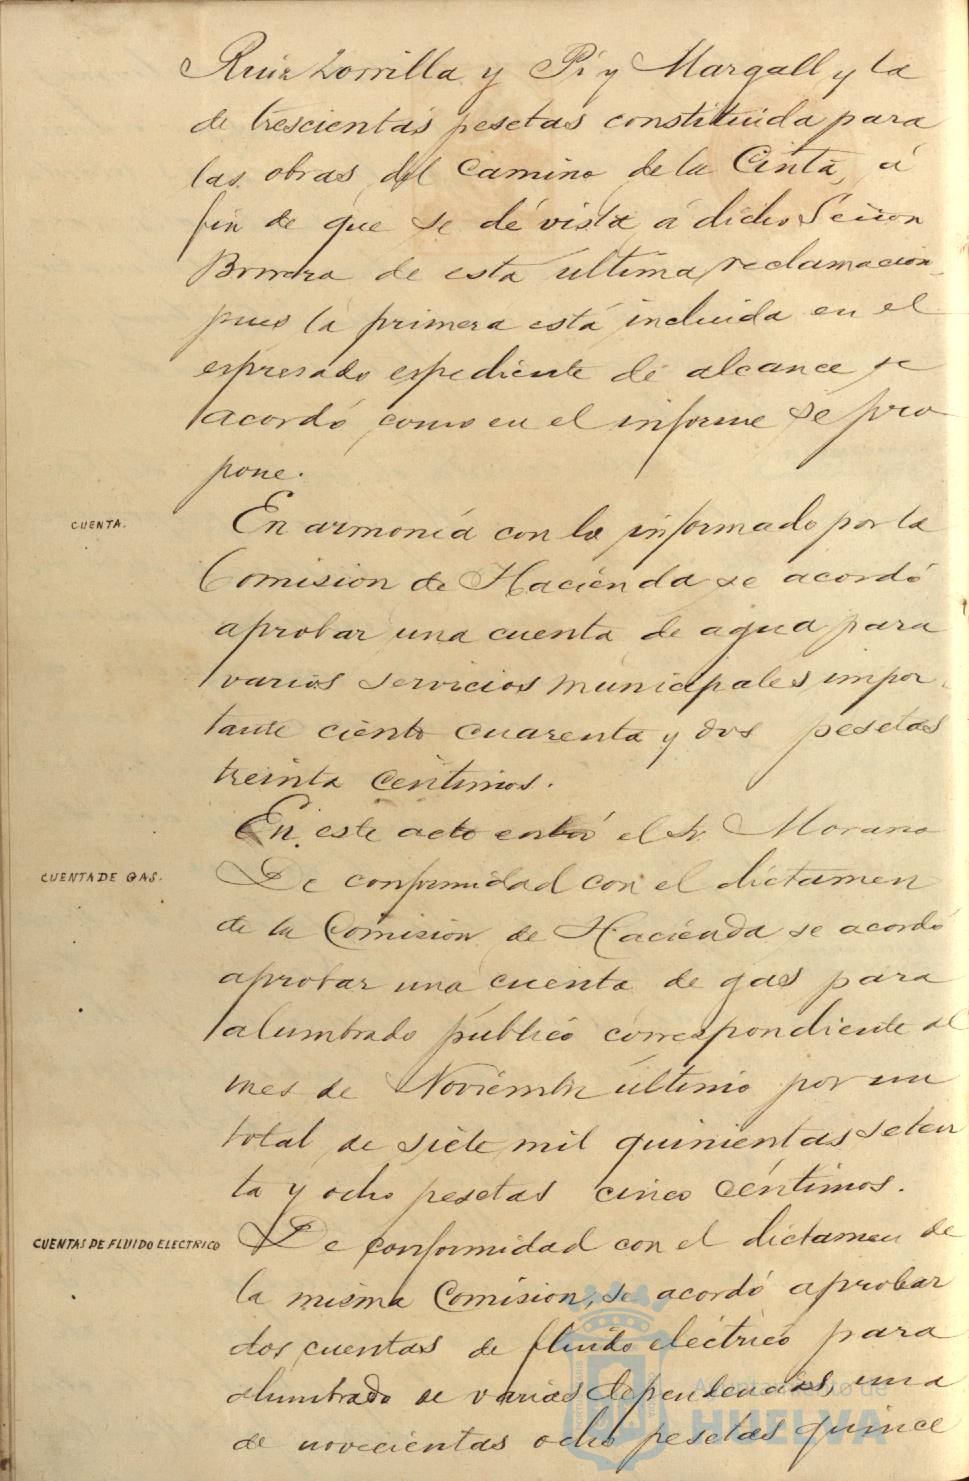 Ruiz Zorrilla y Pi y Margall y la
de trescientas pesetas constituida para
las obras del Camino de la Cinta, á
fin de que se dé vista á dicho Señor
de esta última reclamacion
pues la primera está incluida en el
espresado espediente de alcance se
acordó como en el informe se pro
pone.
CUENTA.
En armonía con lo informado por la
Comision de Hacienda se acordó
aprobar una cuenta de agua para
varios servicios municipales impor-
tante ciento cuarenta y dos pesetas
treinta centimos.
En este acto entró el Sr. Morano
CUENTA DE GAS.
De conformidad con el dictamen
de la Comision de Hacienda se acordó
aprobar una cuenta de gas para
alumbrado público correspondiente al
mes de Noviembre último por un
total de siete mil quinientas seten
ta y ocho pesetas cinco céntimos.
CUENTAS DE FLUIDO ELECTRICO
De conformidad con el dictamen de
la misma Comision, se acordó aprobar
dos cuentas de fluido eléctrico para
alumbrado de varias dependencias, una
de novecientas ocho pesetas quince
Ayuntamiento de
HUELVA